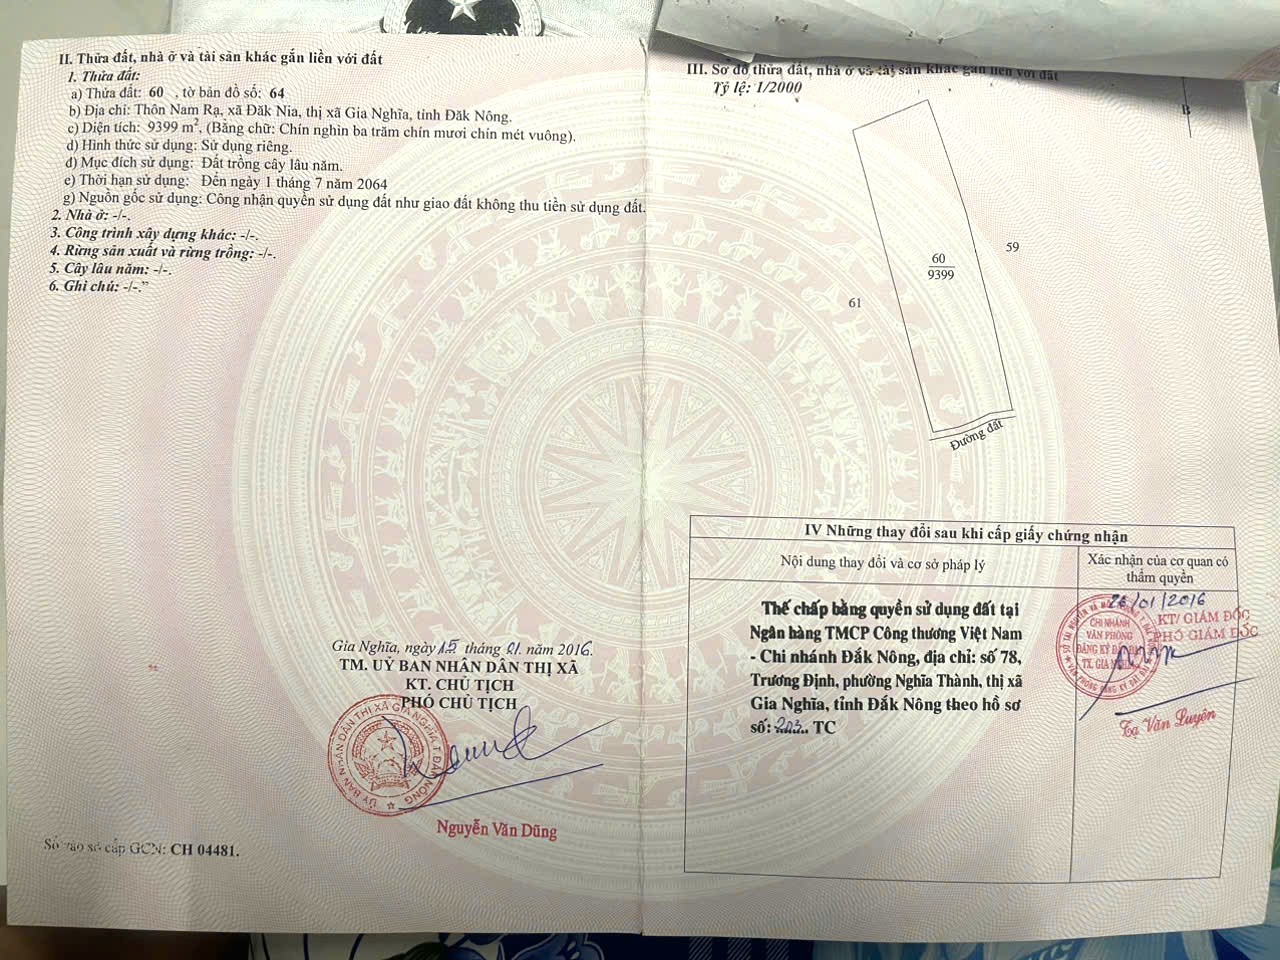 II. Thửa đất, nhà ở và tài sản khác gắn liền với đất
1. Thửa đất:
a) Thửa đất: 60 , tờ bản đồ số: 64
b) Địa chỉ: Thôn Nam Rạ, xã Đăk Nia, thị xã Gia Nghĩa, tỉnh Đăk Nông.
c) Diện tích: 9399 m². (Bằng chữ: Chín nghìn ba trăm chín mươi chín mét vuông).
d) Hình thức sử dụng: Sử dụng riêng.
đ) Mục đích sử dụng: Đất trồng cây lâu năm.
e) Thời hạn sử dụng: Đến ngày 1 tháng 7 năm 2064
g) Nguồn gốc sử dụng: Công nhận quyền sử dụng đất như giao đất không thu tiền sử dụng đất.
2. Nhà ở: -/-.
3. Công trình xây dựng khác: -/-.
4. Rừng sản xuất và rừng trồng: -/-.
5. Cây lâu năm: -/-.
6. Ghi chú: -/-.”
Gia Nghĩa, ngày 15 tháng 01 năm 2016.
TM. UỶ BAN NHÂN DÂN THỊ XÃ
KT. CHỦ TỊCH
PHÓ CHỦ TỊCH
ỦY BAN NHÂN DÂN THỊ XÃ GIA NGHĨA T. ĐẮK NÔNG
Nguyễn Văn Dũng
Số vào sổ cấp GCN: CH 04481.
III. Sơ đồ thửa đất, nhà ở và tài sản khác gắn liền với đất
Tỷ lệ: 1/2000
B
59
60
9399
61
Đường đất
IV Những thay đổi sau khi cấp giấy chứng nhận
Nội dung thay đổi và cơ sở pháp lý
Xác nhận của cơ quan có
thẩm quyền
Thế chấp bằng quyền sử dụng đất tại
Ngân hàng TMCP Công thương Việt Nam
- Chi nhánh Đắk Nông, địa chỉ: số 78,
Trương Định, phường Nghĩa Thành, thị xã
Gia Nghĩa, tỉnh Đắk Nông theo hồ sơ
số: 203.. TC
26/01/2016
KT/ GIÁM ĐỐC
PHÓ GIÁM ĐỐC
CHI NHÁNH
VĂN PHÒNG
ĐĂNG KÝ ĐẤT ĐAI
TX. GIA NGHĨA
Tạ Văn Luyện